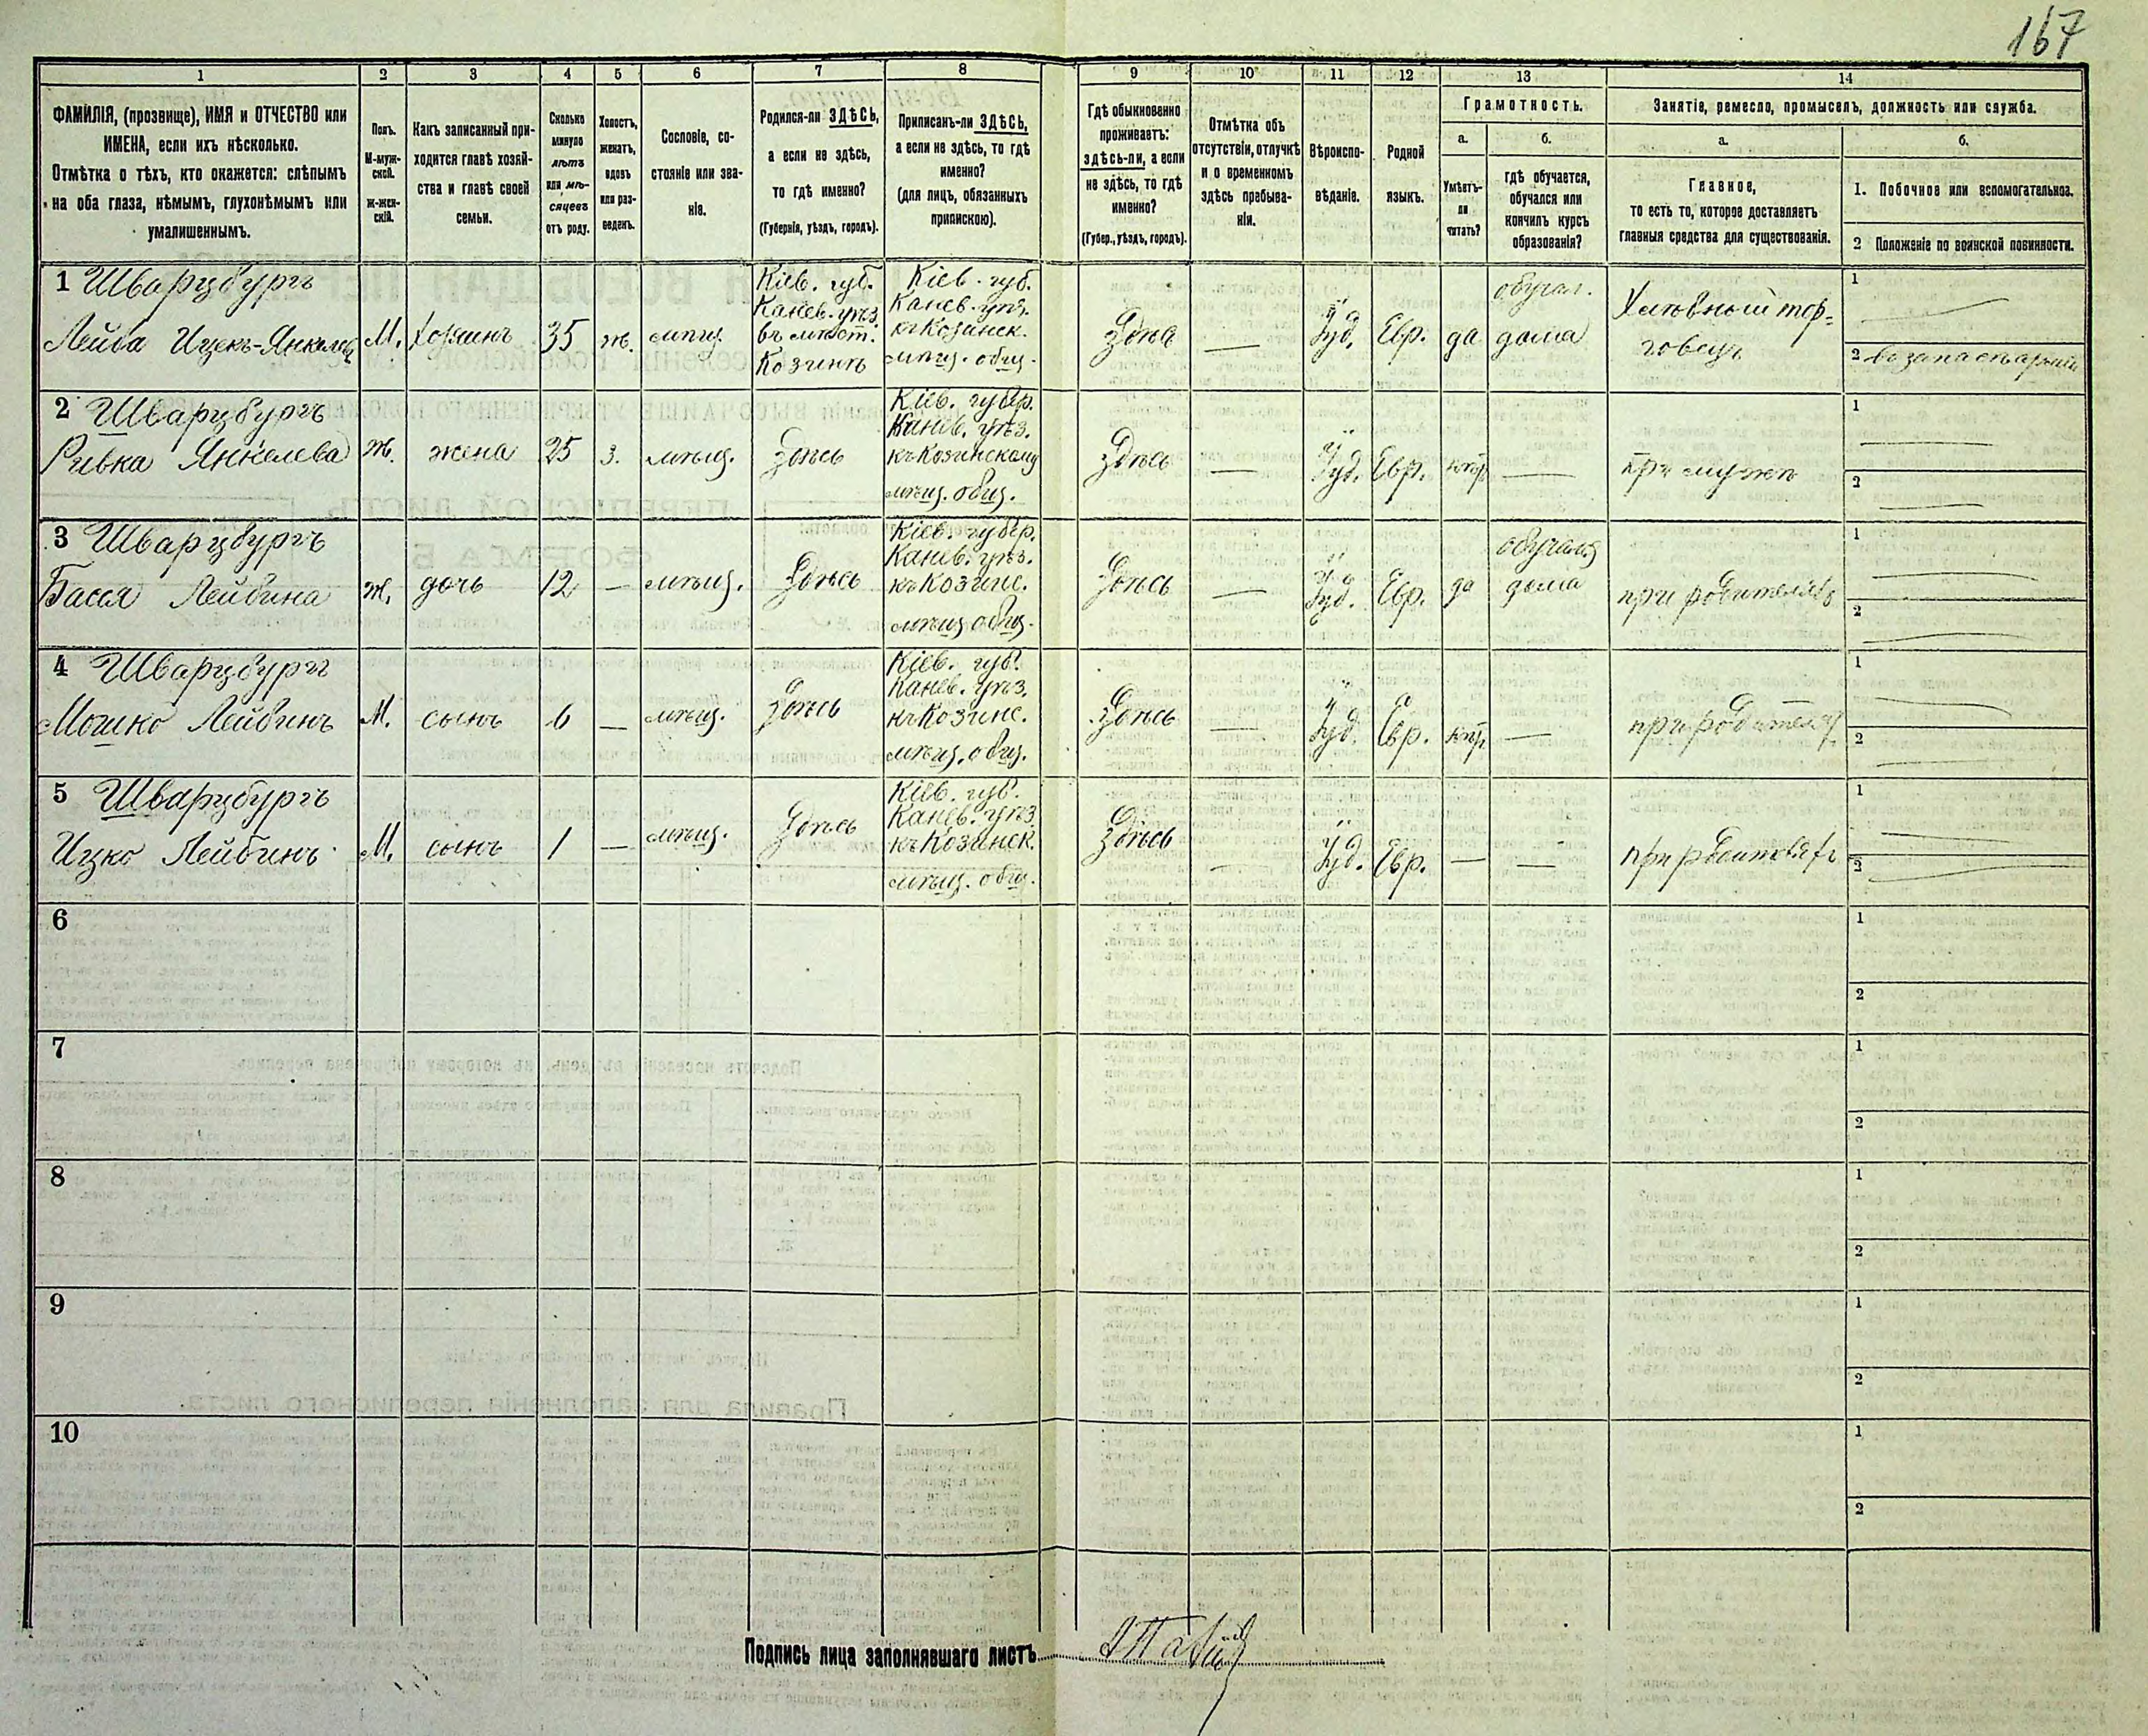 167
1 2 3 4 5 6 7 8 9 10 11 12 13 14
ФАМИЛІЯ, (прозвище), ИМЯ и ОТЧЕСТВО или
ИМЕНА, если ихъ нѣсколько.
Отмѣтка о тѣхъ, кто окажется: слѣпымъ
на оба глаза, нѣмымъ, глухонѣмымъ или
умалишеннымъ.
Полъ.
М-муж-
ской.
ж-жен-
скій.
Какъ записанный при-
ходится главѣ хозяй-
ства и главѣ своей
семьи.
Сколько
минуло
лѣтъ
или мѣ-
сяцевъ
отъ роду.
Холостъ,
женатъ,
вдовъ
или раз-
веденъ.
Сословіе, со-
стояніе или зва-
ніе.
Родился-ли ЗДѢСЬ,
а если не здѣсь,
то гдѣ именно?
(Губернія, уѣздъ, городъ).
Приписанъ-ли ЗДѢСЬ,
а если не здѣсь, то гдѣ
именно?
(для лицъ, обязанныхъ
припискою).
Гдѣ обыкновенно
проживаетъ:
здѣсь-ли, а если
не здѣсь, то гдѣ
именно?
(Губер., уѣздъ, городъ).
Отмѣтка объ
отсутствіи, отлучкѣ
и о временномъ
здѣсь пребыва-
ніи.
Вѣроиспо-
вѣданіе.
Родной
языкъ.
Грамотность.
а.
Умѣетъ-
ли
читать?
б.
гдѣ обучается,
обучался или
кончилъ курсъ
образованія?
Занятіе, ремесло, промыселъ, должность или служба.
а.
Главное,
то есть то, которое доставляетъ
главныя средства для существованія.
б.
1. Побочное или вспомогательное.
2 Положеніе по воинской повинности.
1 Шварцбургъ
Лейба Ицекъ-Янкелев
М.
Хозяинъ
35
ж.
мѣщ.
Кіев. губ.
Канев. уѣз.
въ мѣст.
Козинѣ
Кіев. губ.
Канев. уѣз.
къ Козинск.
мѣщ. общ.
Здѣсь
—
Іуд.
Евр.
да
обучал.
дома
Хлѣбный тор-
говецъ
1 —
2 въ запасѣ арміи
2 Шварцбургъ
Ривка Янкелева
ж.
жена
25
з.
мѣщ.
Здѣсь
Кіев. губер.
Канев. уѣз.
къ Козинскому
мѣщ. общ.
Здѣсь
—
Іуд.
Евр.
нѣтъ
—
при мужѣ
1 —
2 —
3 Шварцбургъ
Бася Лейбина
ж.
дочь
12
—
мѣщ.
Здѣсь
Кіев. губер.
Канев. уѣз.
къ Козинс.
мѣщ. общ.
Здѣсь
—
Іуд.
Евр.
да
обучался
дома
при родителяхъ
1 —
2 —
4 Шварцбургъ
Мошко Лейбинъ
М.
сынъ
6
—
мѣщ.
Здѣсь
Кіев. губ.
Канев. уѣз.
къ Козинс.
мѣщ. общ.
Здѣсь
—
Іуд.
Евр.
нѣтъ
—
при родителях
1 —
2 —
5 Шварцбургъ
Ицко Лейбинъ
М.
сынъ
1
—
мѣщ.
Здѣсь
Кіев. губ.
Канев. уѣз.
къ Козинск.
мѣщ. общ.
Здѣсь
—
Іуд.
Евр.
—
—
при родителяхъ
1 —
2 —
6
1
2
7
1
2
8
1
2
9
1
2
10
1
2
Подпись лица заполнявшаго листъ